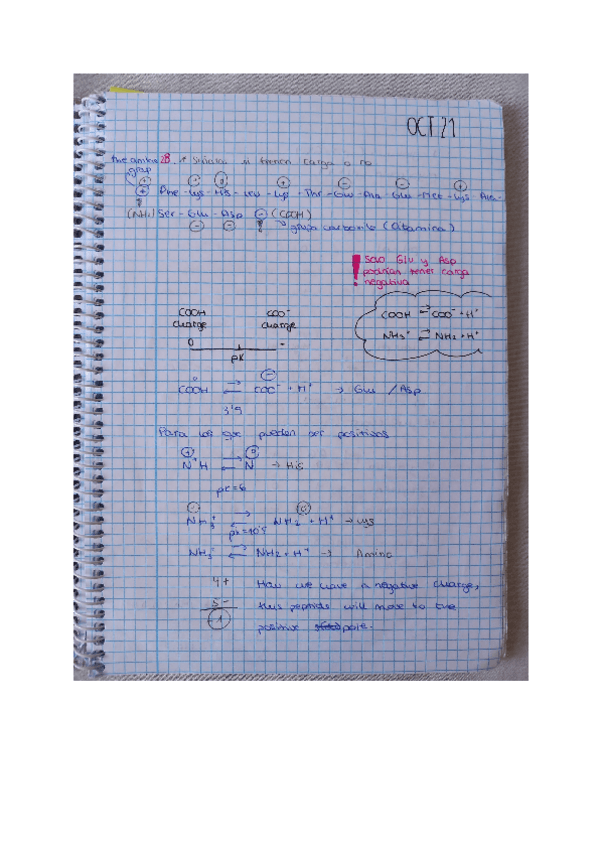 OCT 21
the amino 28. si tienen carga o no
group
+ + 0 + - - + 
+ Phe - Lys - His - Leu - Lys - Thr - Glu - Ala - Glu - Met - Lys - Ala -
(NH2) Ser - Glu - Asp - (COOH)
- - ! → grupo carboxilo
! Solo Glu y Asp
podrían tener carga
negativa
COOH COO⁻
charge charge
0 -
pK
COOH ⇄ COO⁻ + H⁺
NH3⁺ ⇄ NH2 + H⁺
0 -
COOH ⇄ COO⁻ + H⁺ → Glu / Asp
3'9
Para los que pueden ser positivos
+ 0
N⁺H ⇄ N → His
pK = 6
NH3⁺ ⇄ NH2 + H⁺ → Lys
pK = 10'5
NH3⁺ ⇄ NH2 + H⁺ → Amino
4+ How we have a negative charge,
5- this peptide will move to the
-1 positive pole.